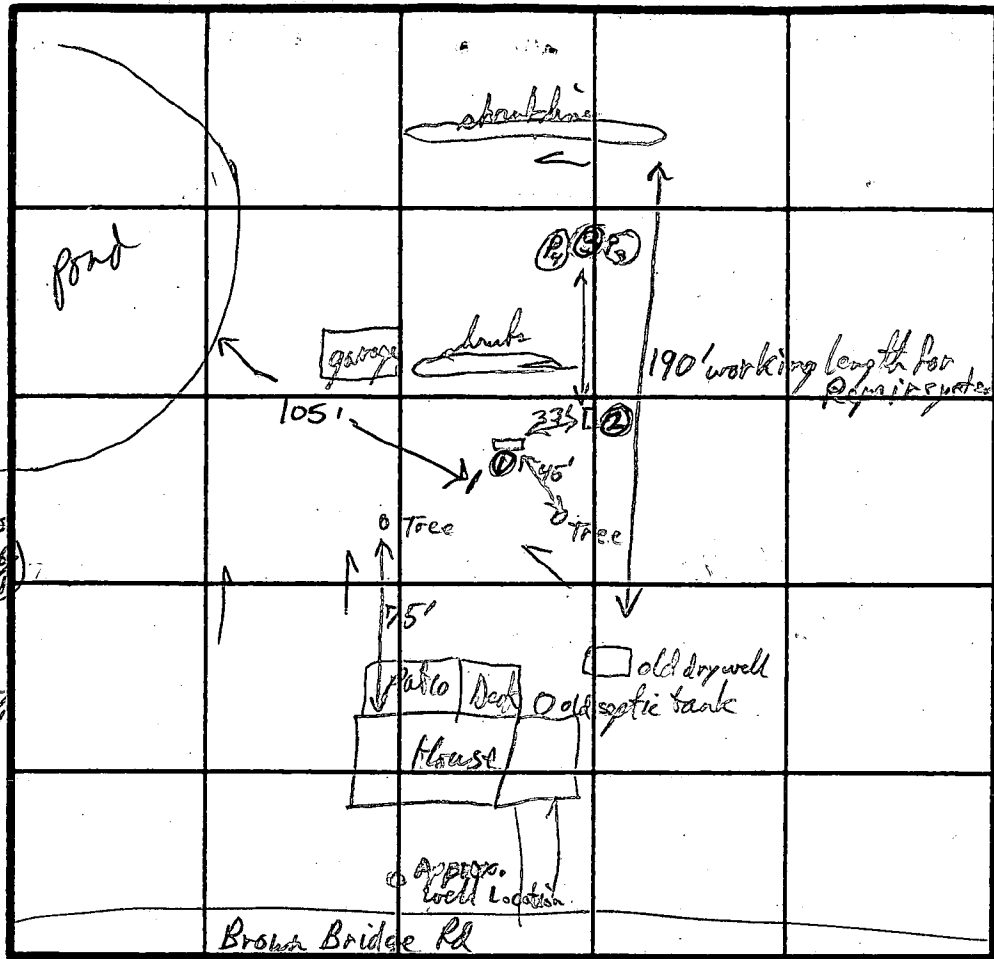 shrubline
Pond
P4 3 P3
garage
shrubs
190' working length for
Repair system
105'
33'
2
1
45'
Tree
Tree
75'
Patio Deck
old drywell
old septic tank
House
Approx.
Well Location
Brown Bridge Rd